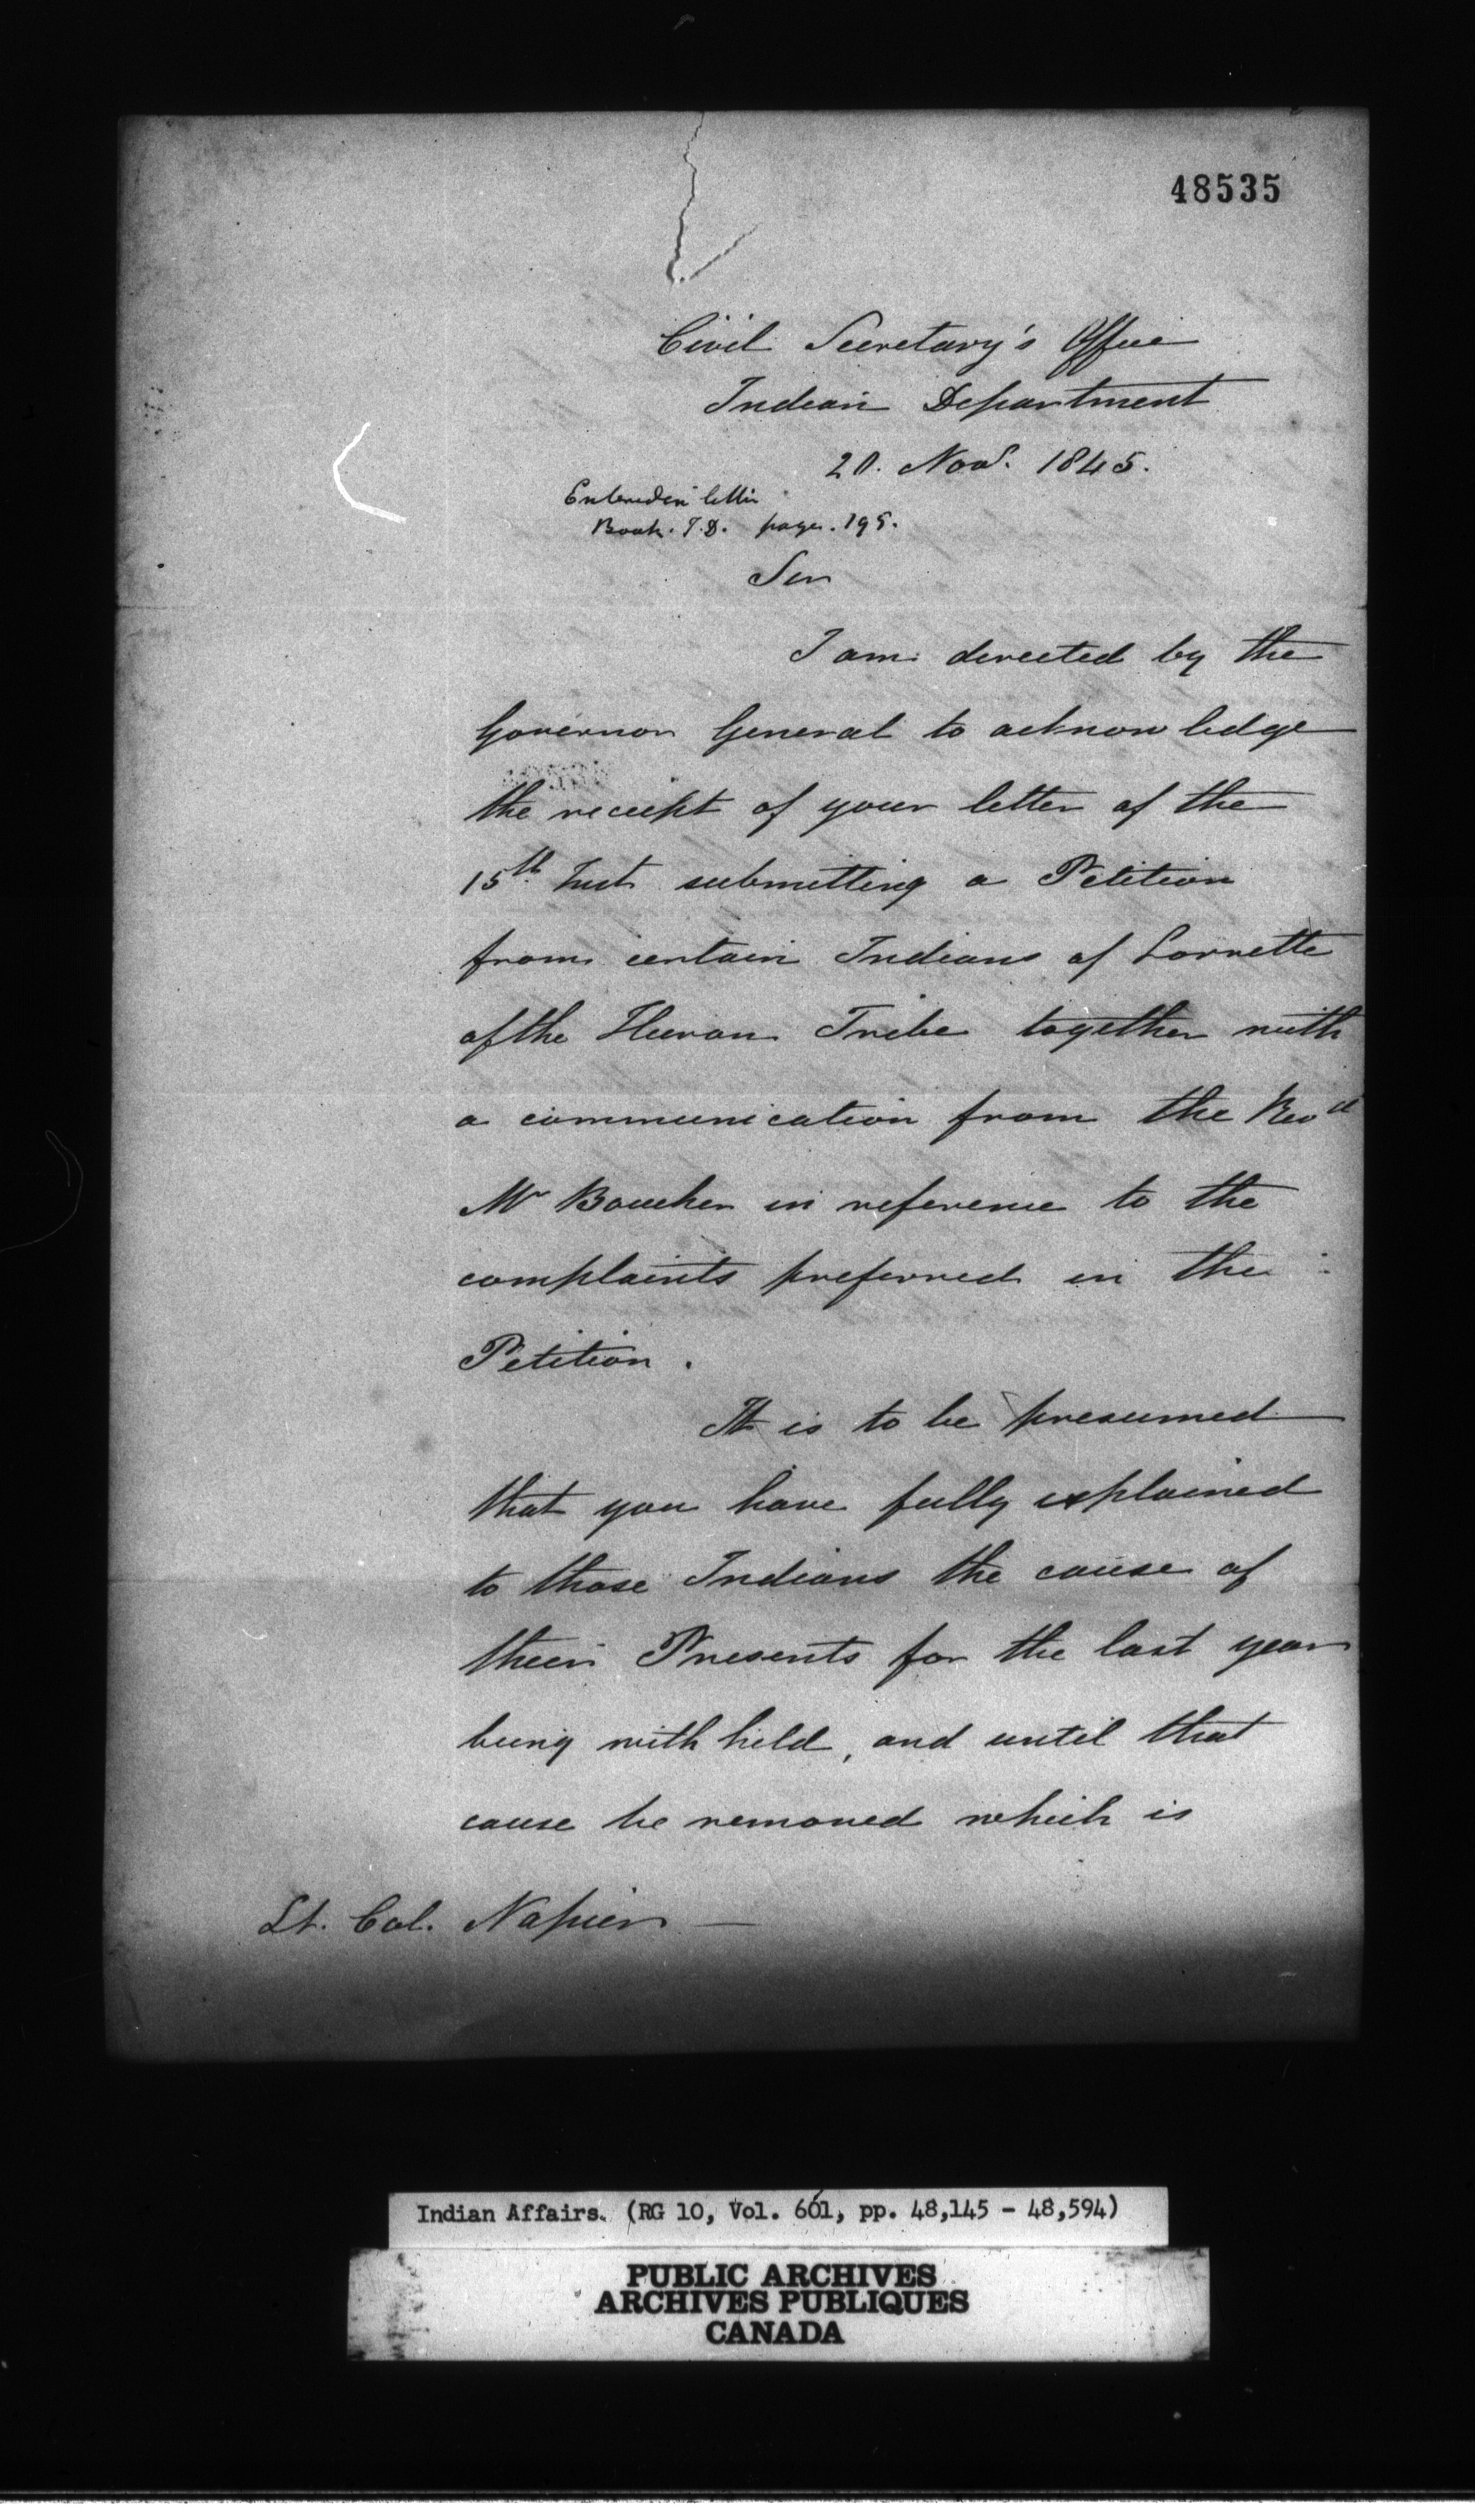 48535
Civil Secretary's Office
Indian Department
20. Novr. 1845.
Entered in letter
Book. I.D. page. 195.
Sir
I am directed by the
Governor General to acknowledge
the receipt of your letter of the
15th Inst submitting a Petition
from certain Indians of Lorrette
of the Huron Tribe together with
a communication from the Revd
Mr Boucher in reference to the
complaints preferred in the
Petition.
It is to be presumed
that you have fully explained
to those Indians the cause of
their Presents for the last year
being with held, and until that
cause be removed which is
Lt. Col. Napier —
Indian Affairs. (RG 10, Vol. 601, pp. 48,145 - 48,594)
PUBLIC ARCHIVES
ARCHIVES PUBLIQUES
CANADA